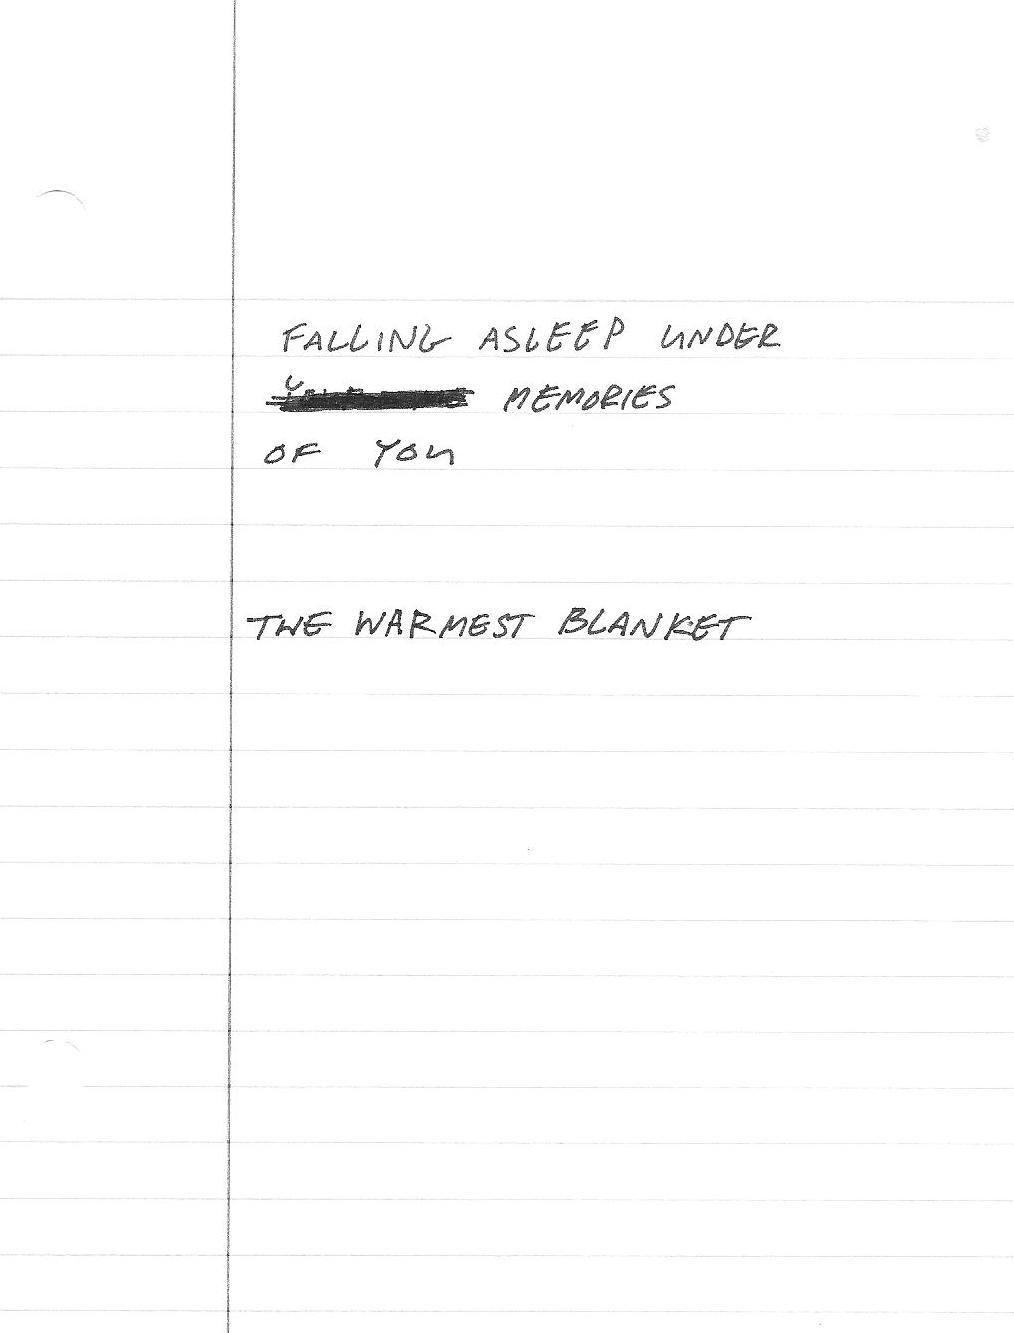 FALLING ASLEEP UNDER
MEMORIES
OF YOU
THE WARMEST BLANKET